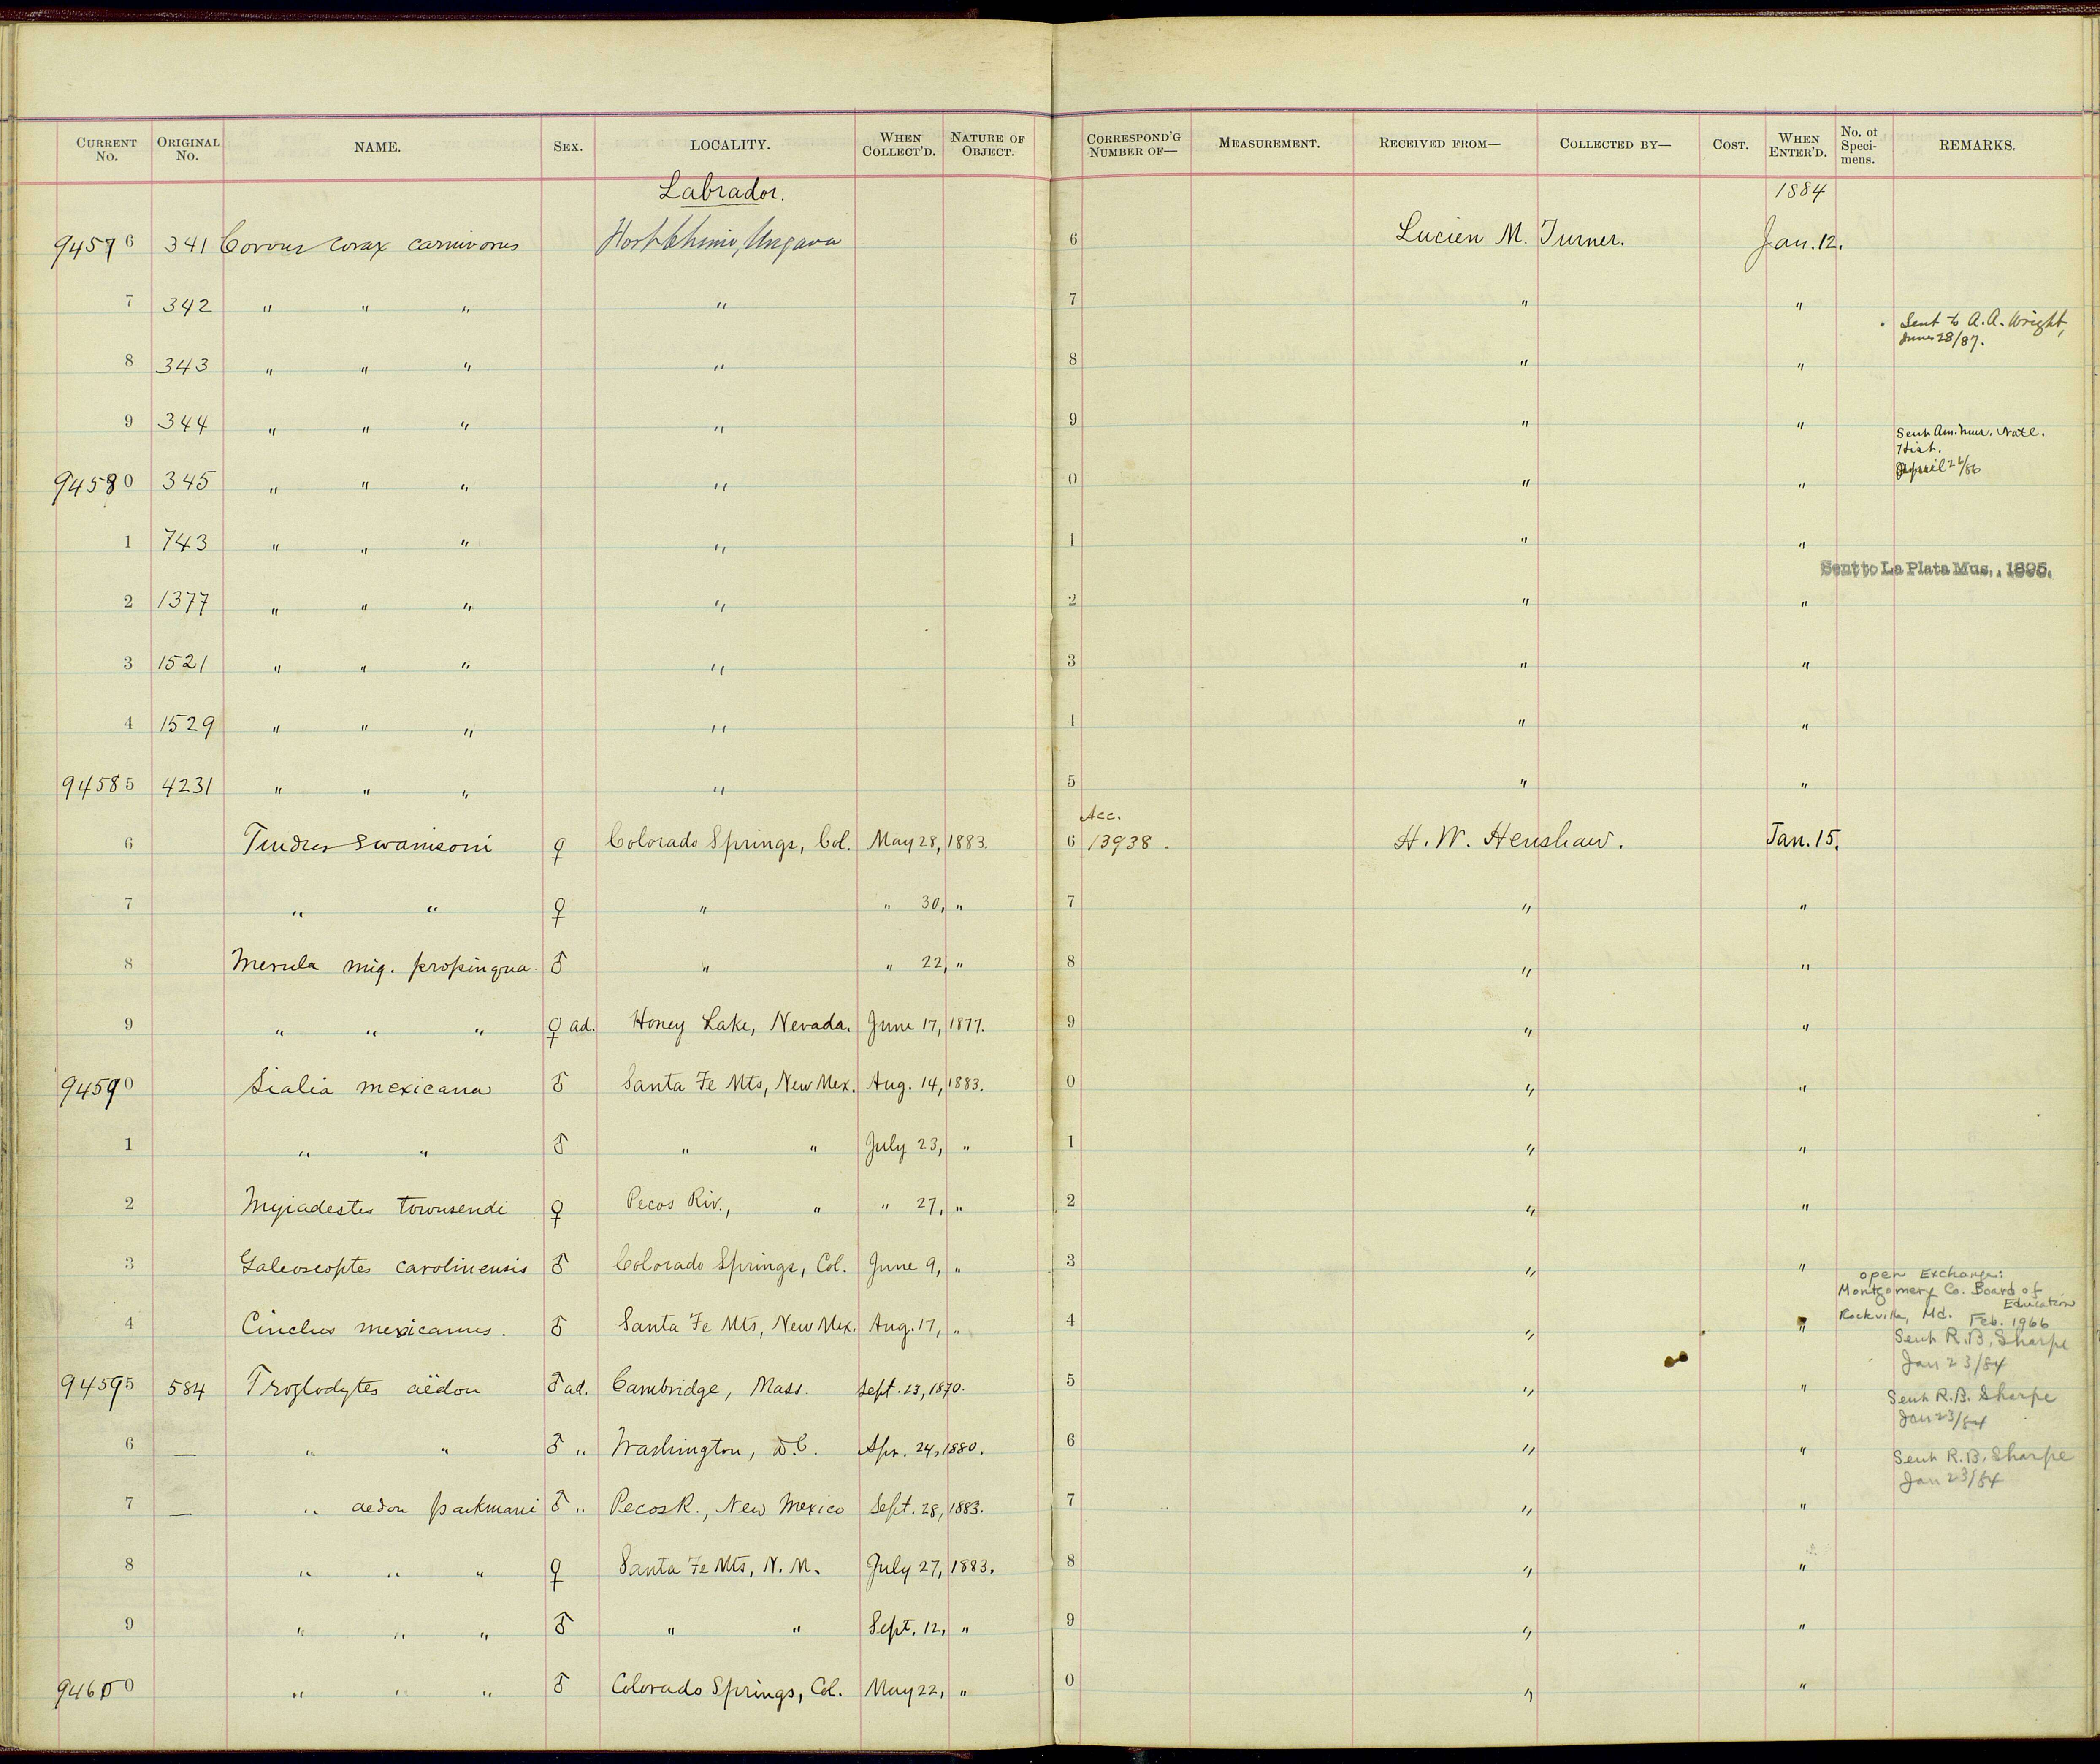 CURRENT No. ORIGINAL No. NAME. SEX. LOCALITY. WHEN COLLECT'D. NATURE OF OBJECT. CORRESPOND'G NUMBER OF— MEASUREMENT. RECEIVED FROM— COLLECTED BY— COST. WHEN ENTER'D. No. of Speci-mens. REMARKS.
Labrador. 1884
94576 341 Corvus corax carnivorus Fort Chimo, Ungava 6 Lucien M. Turner. Jan. 12.
7 342 " " " " 7 " "
Sent to A. A. Wright,
June 28/87.
8 343 " " " " 8 " "
9 344 " " " " 9 " "
Sent Am. Mus. Natl.
Hist.
April 26/86
94580 345 " " " " 0 " "
1 743 " " " " 1 " "
Sent to La Plata Mus., 1895.
2 1377 " " " " 2 " "
3 1521 " " " " 3 " "
4 1529 " " " " 4 " "
94585 4231 " " " " 5 " "
Acc.
6 Turdus swainsoni ♀ Colorado Springs, Col. May 28, 1883. 6 13938. H. W. Henshaw. Jan. 15.
7 " " ♀ " " 30, " 7 " "
8 Merula mig. propinqua. ♂ " " 22, " 8 " "
9 " " " ♀ ad. Honey Lake, Nevada. June 17, 1877. 9 " "
94590 Sialia mexicana ♂ Santa Fe Mts, New Mex. Aug. 14, 1883. 0 " "
1 " " ♂ " " July 23, " 1 " "
2 Myiadestes townsendi ♀ Pecos Riv., " " 27, " 2 " "
3 Galeoscoptes carolinensis ♂ Colorado Springs, Col. June 9, " 3 " "
open Exchange:
Montgomery Co. Board of
Education
Rockville, Md. Feb. 1966
4 Cinclus mexicanus. ♂ Santa Fe Mts, New Mex. Aug. 17, " 4 " "
Sent R. B. Sharpe
Jan 23/84
94595 584 Troglodytes aëdon ♂ ad. Cambridge, Mass. Sept. 23, 1870. 5 " "
Sent R. B. Sharpe
Jan 23/84
6 — " " ♂ " Washington, D.C. Apr. 24, 1880. 6 " "
Sent R. B. Sharpe
Jan 23/84
7 — " aedon parkmani ♂ " Pecos R., New Mexico Sept. 28, 1883. 7 " "
8 " " " ♀ Santa Fe Mts, N. M. July 27, 1883. 8 " "
9 " " " ♂ " " Sept. 12, " 9 " "
94600 " " " ♂ Colorado Springs, Col. May 22, " 0 " "